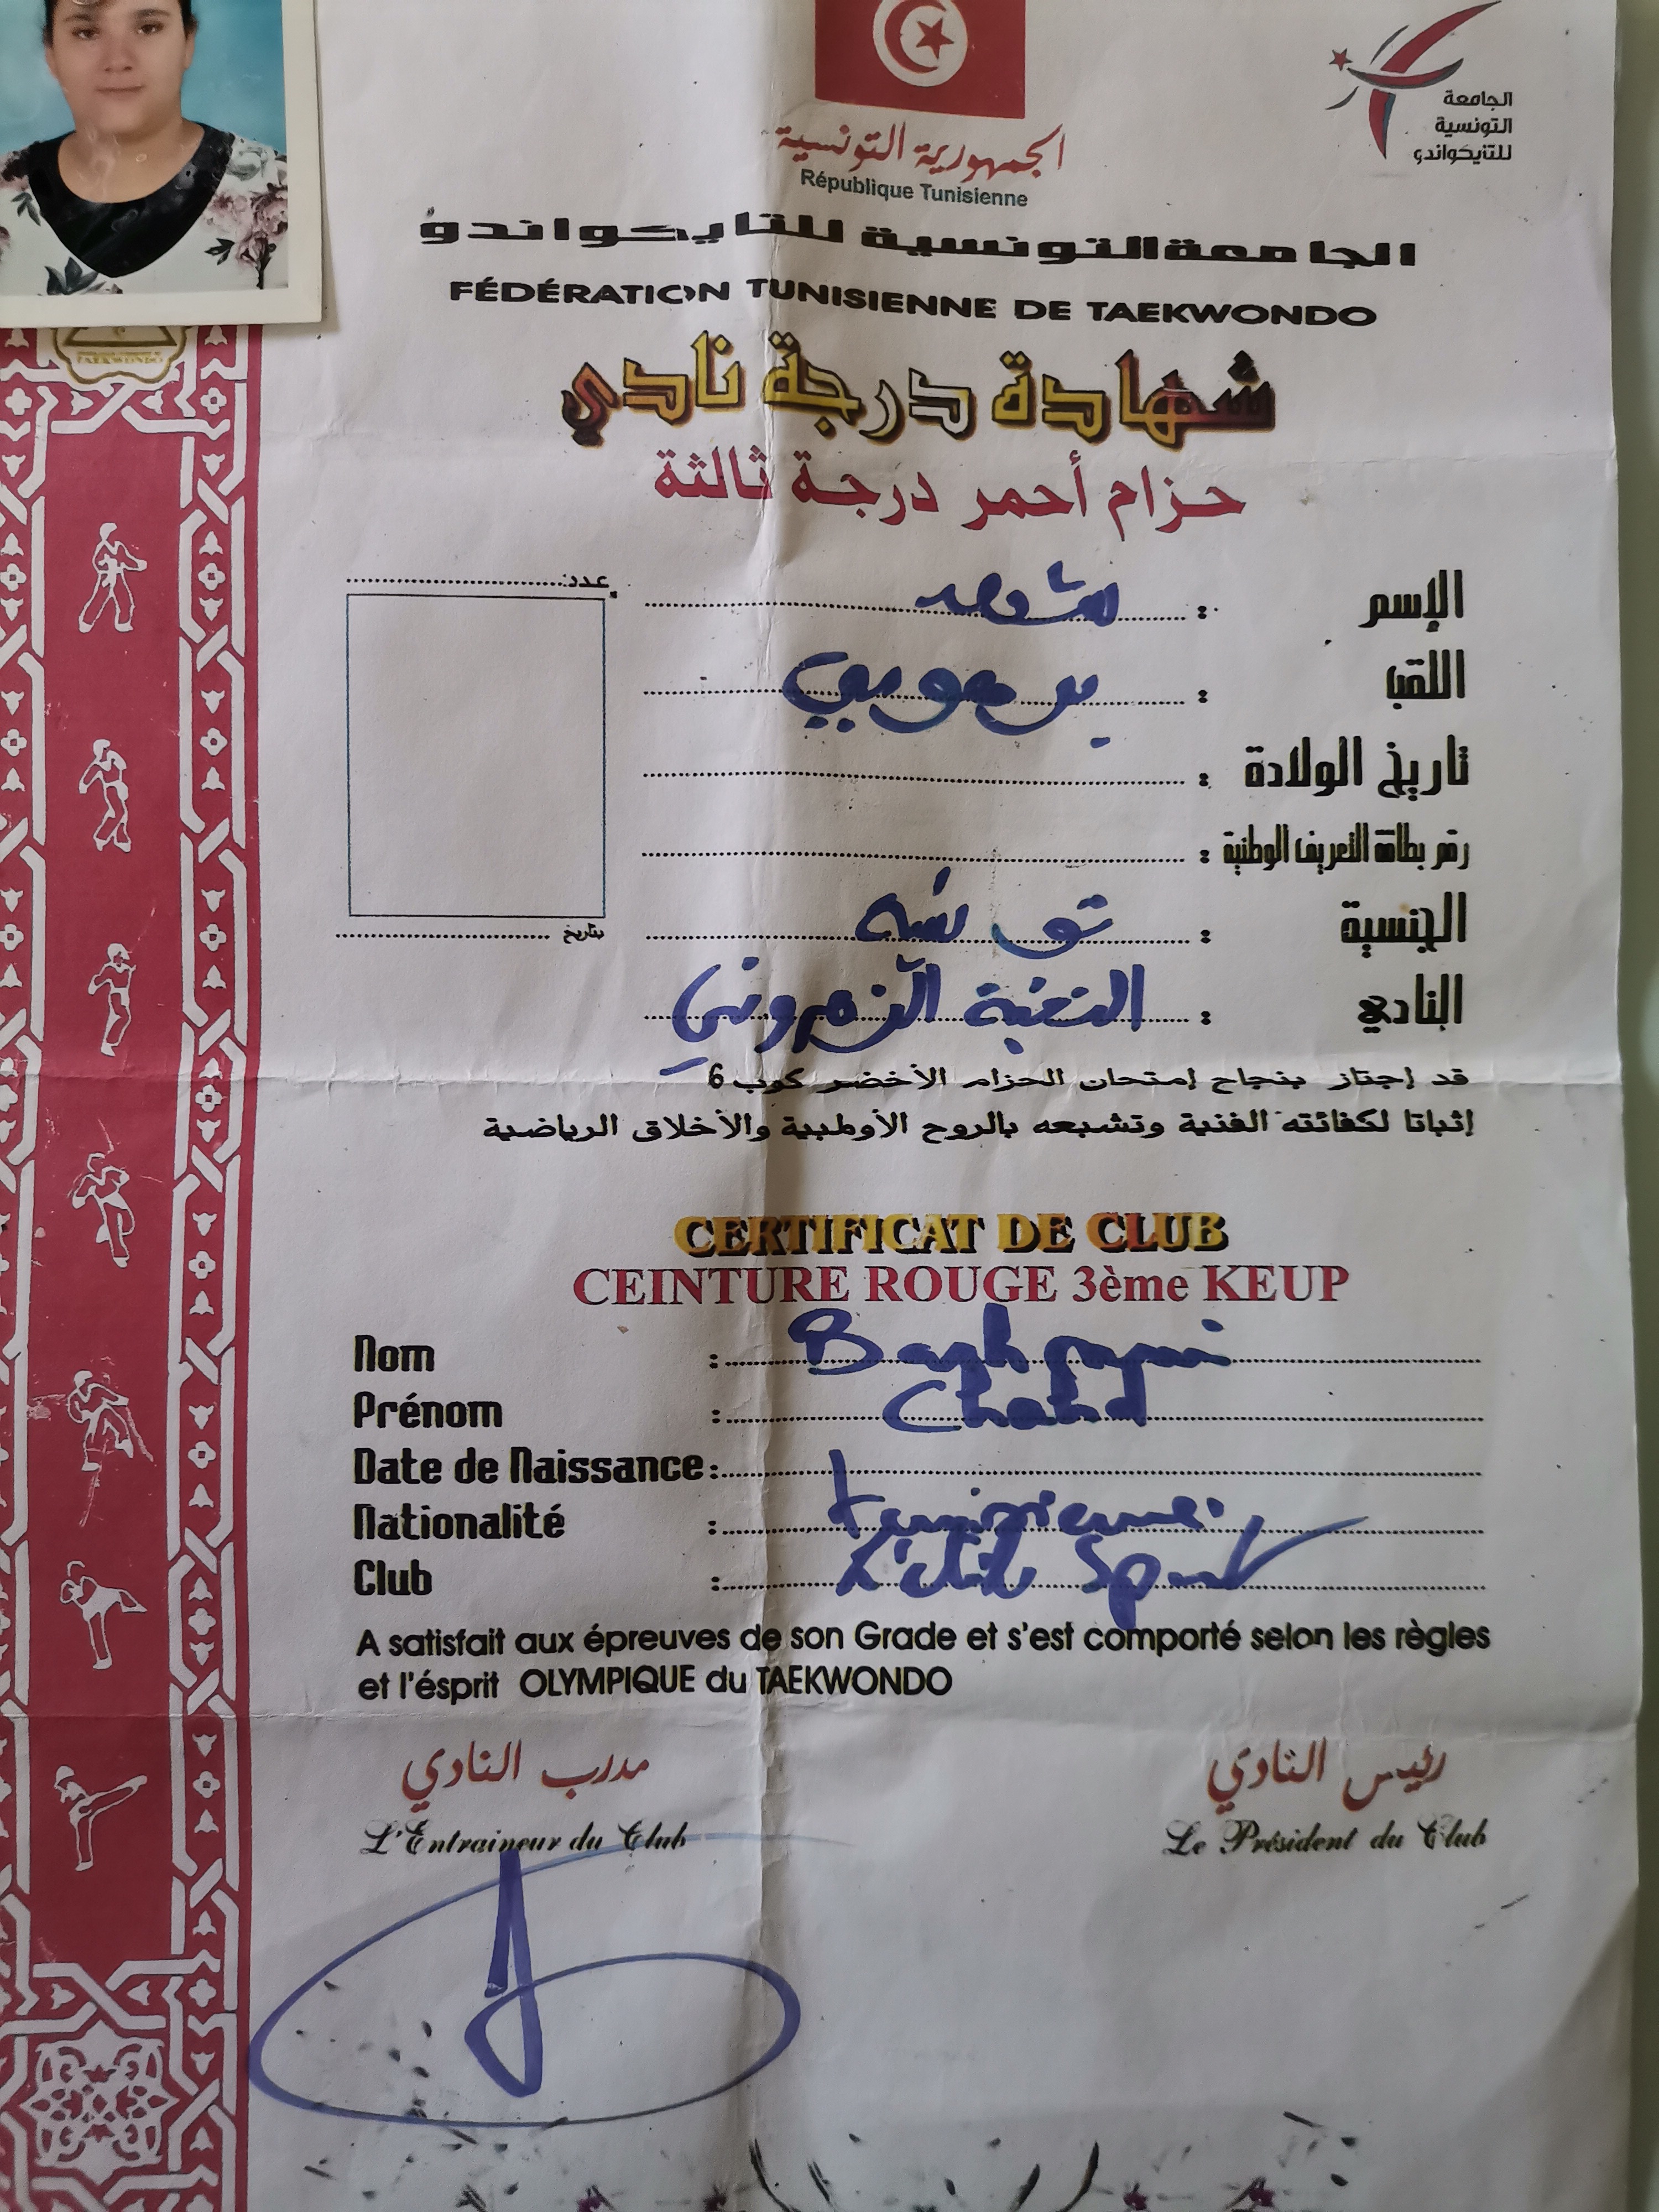 الجامعة
التونسية
للتايكواندو
الجمهورية التونسية
République Tunisienne
الجامعة التونسية للتايكواندو
FÉDÉRATION TUNISIENNE DE TAEKWONDO
TAEKWONDO
شهادة درجة نادي
حزام أحمر درجة ثالثة
عدد:
الإسم : شهد
اللقب :
تاريخ الولادة :
رقم بطاقة التعريف الوطنية :
الجنسية : تونسية
بتاريخ
النادي : النخبة
قد إجتاز بنجاح إمتحان الحزام الأخضر كوب 6
إثباتا لكفائته الفنية وتشبعه بالروح الأولمبية والأخلاق الرياضية
CERTIFICAT DE CLUB
CEINTURE ROUGE 3ème KEUP
Nom :
Prénom : Chahd
Date de Naissance :
Nationalité : tunisienne
Club : L'élite Sport
A satisfait aux épreuves de son Grade et s'est comporté selon les règles
et l'ésprit OLYMPIQUE du TAEKWONDO
رئيس النادي
مدرب النادي
L'Entraineur du Club
Le Président du Club